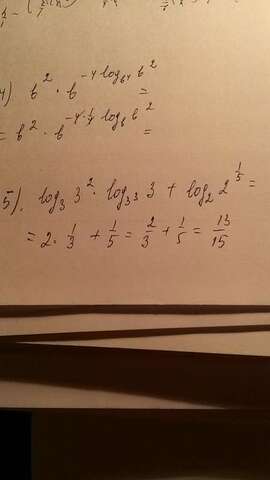 4) b² · b^(-4 log_(b⁴) b²) =
= b² · b^(-4·1/4 log_b b²) =
5). log₃ 3² · log_(3³) 3 + log₂ 2^(1/5) =
= 2 · 1/3 + 1/5 = 2/3 + 1/5 = 13/15